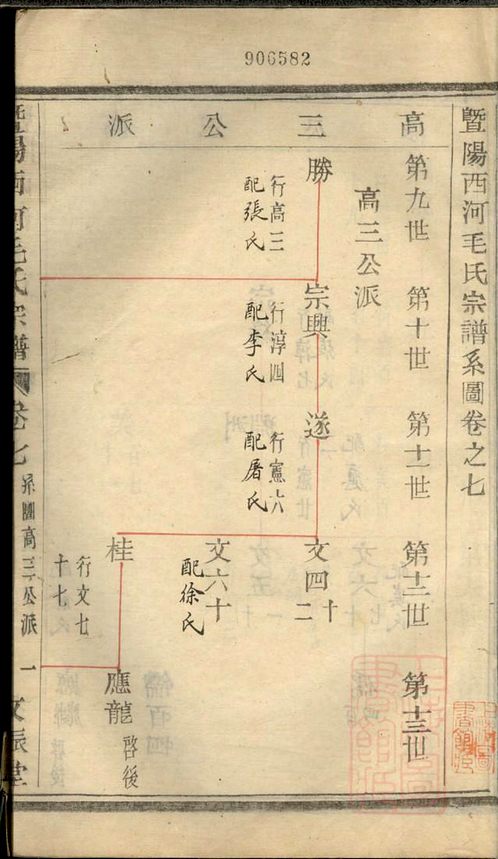 906582
暨陽西河毛氏宗譜系圖卷之七
高三公派
第九世
第十世
第十一世
第十二世
第十三世
高三公派
勝
行高三
配張氏
宗興
行淳四
配李氏
遂
行憲六
配屠氏
文四十二
文六十
配徐氏
桂
行文七十七
應龍
啓後
暨陽西河毛氏宗譜
卷七
系圖高三公派
一
文振堂